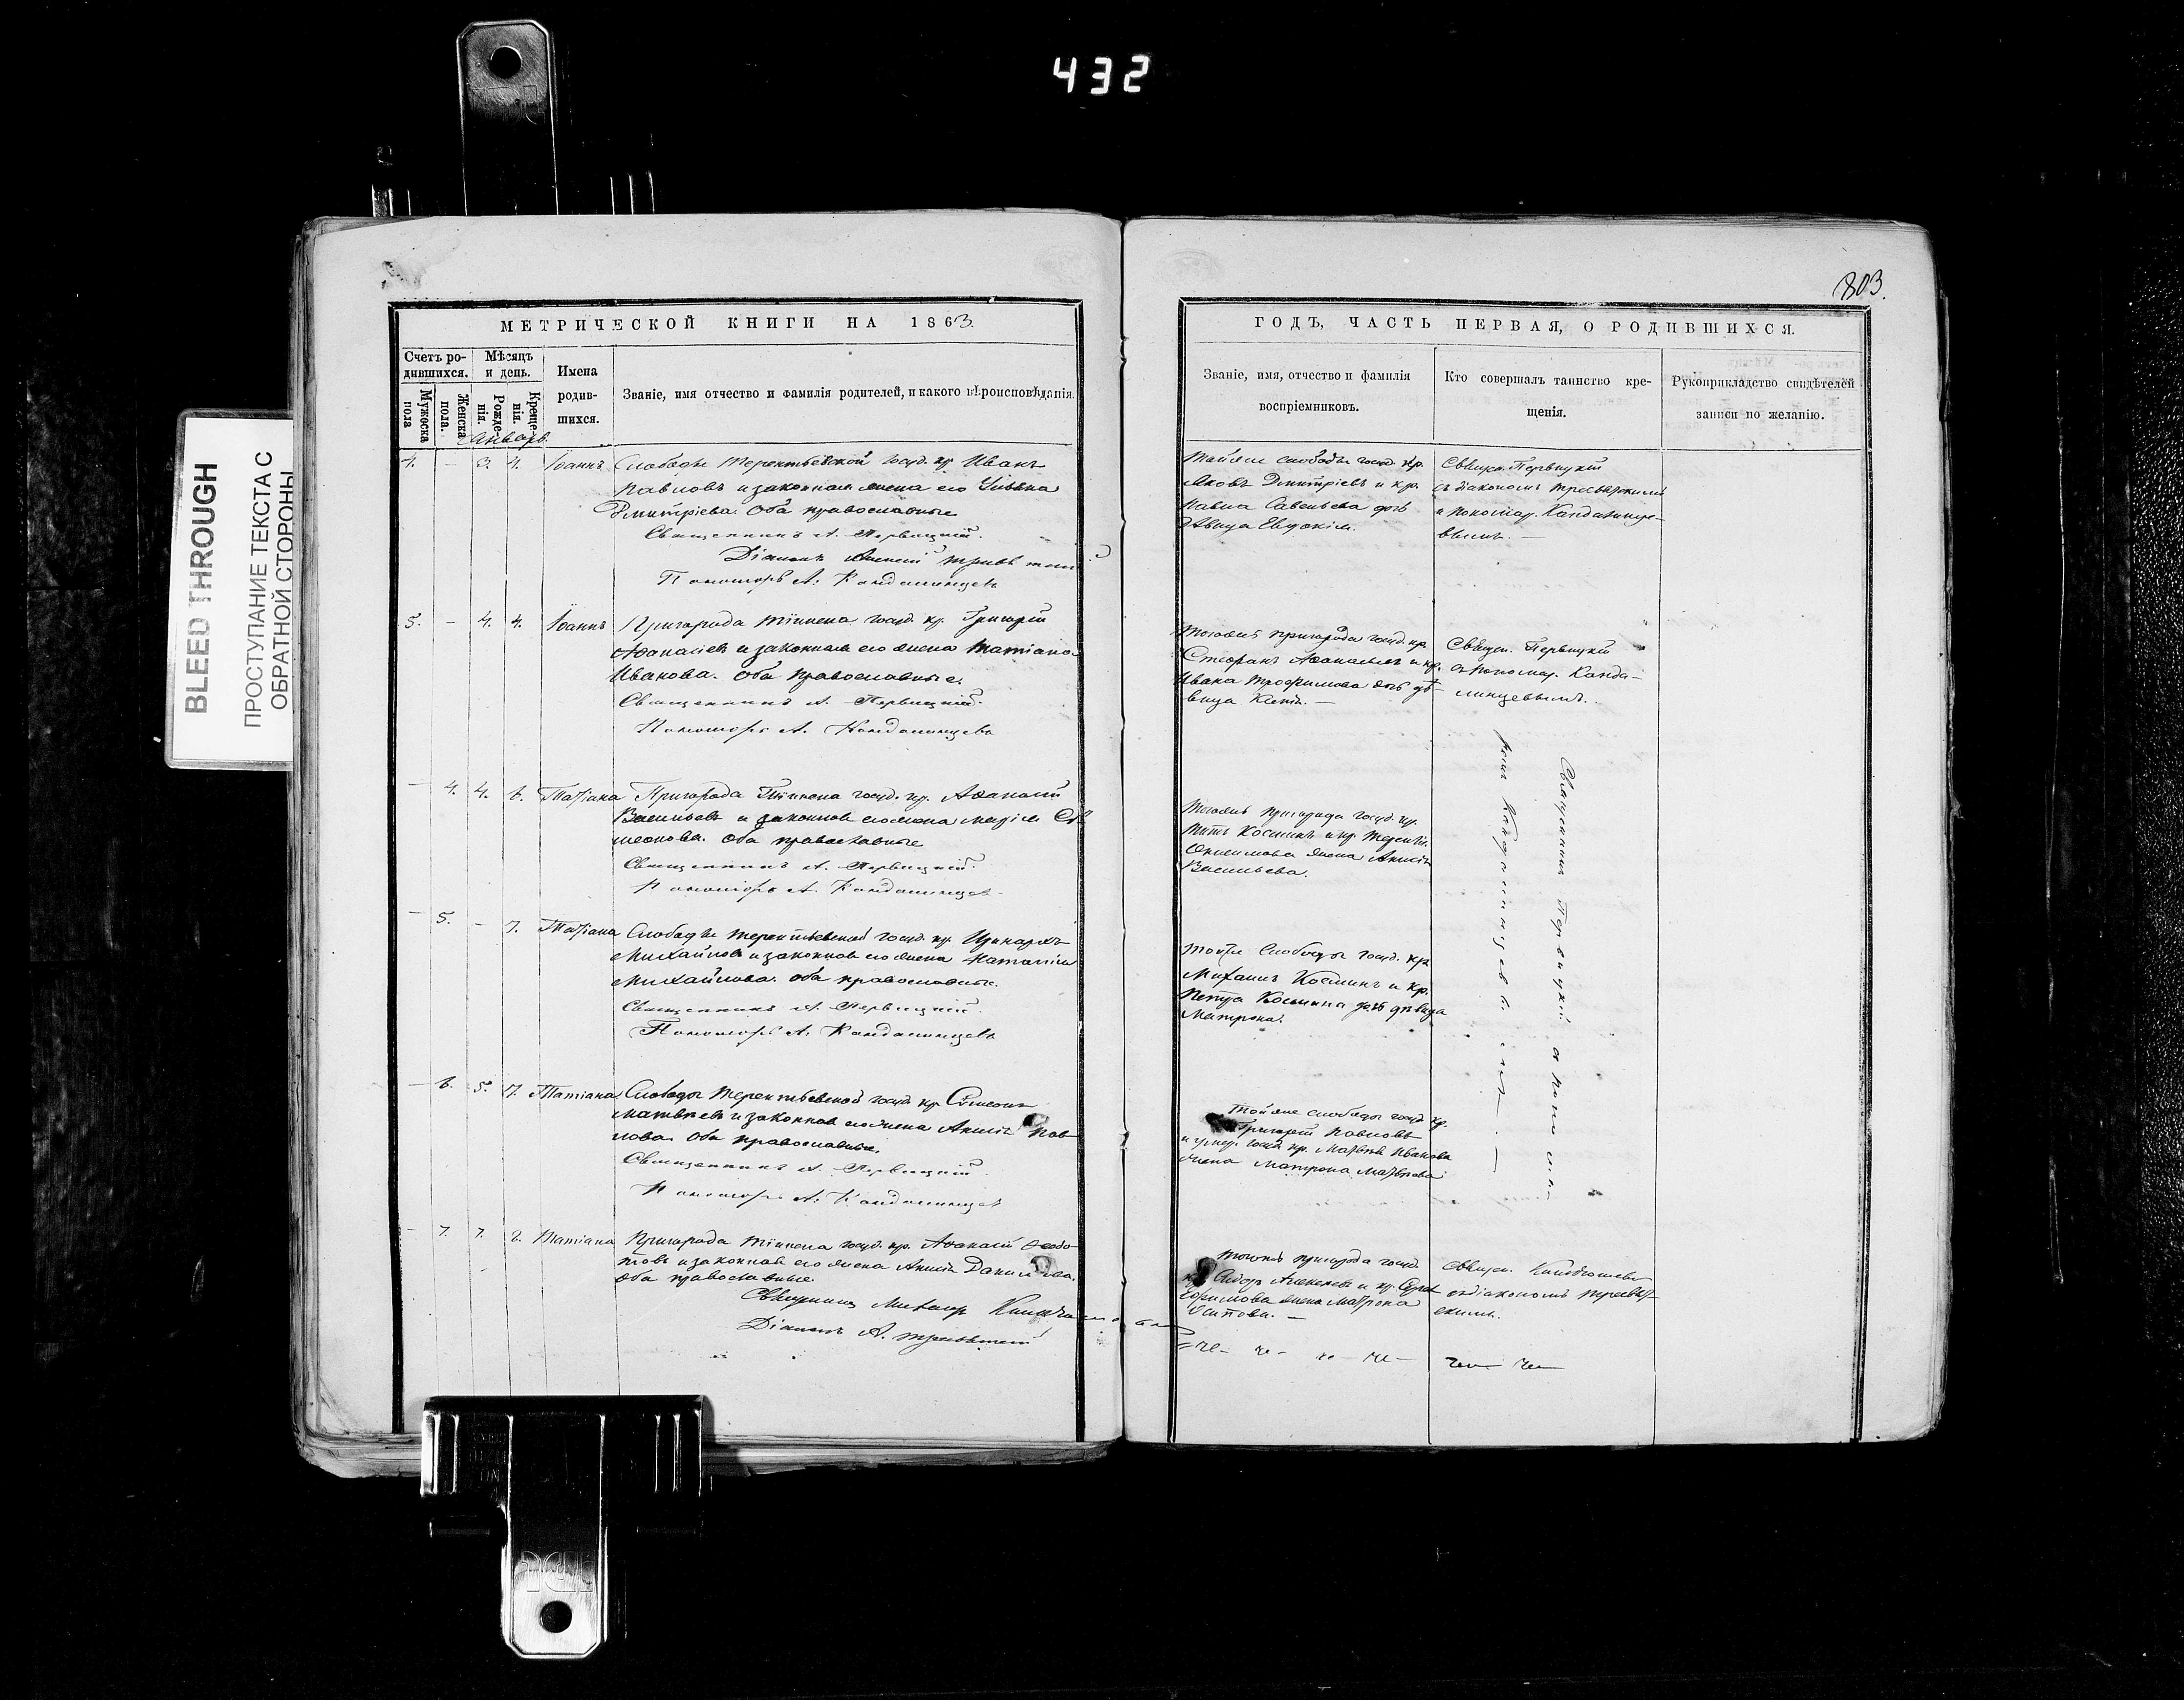 432
803.
BLEED THROUGH
ПРОСТУПАНИЕ ТЕКСТА С
ОБРАТНОЙ СТОРОНЫ
МЕТРИЧЕСКОЙ КНИГИ НА 1863.
Счетъ ро-
дившихся.
Мѣсяцъ
и день.
Мужеска
пола
Женска
пола.
Рожде-
нія.
Креще-
нія.
Имена
родив-
шихся.
Званіе, имя отчество и фамилія родителей, и какого вѣроисповѣданія.
Январь.
4. - 3. 4. Іоаннъ Слободы Терентьевской госуд. кр. Иванъ
Павловъ и законная жена его
Дмитріева. Оба православные
Священникъ А. Первицкій.
Діаконъ Алексій
Пономарь А. Кандалинцевъ
5. - 4. 4. Іоаннъ Пригорода Тіинска госуд. кр. Григорій
Аѳанасіевъ и законная его жена Татіана
Иванова. Оба православные.
Священникъ А. Первицкій.
Пономарь А. Кандалинцевъ
- 4. 4. 6. Татіана Пригорода Тіинска госуд. кр. Аѳанасій
Васильевъ и законная его жена Марія Сѵ-
меонова. Оба православные
Священникъ А. Первицкій.
Пономарь А. Кандалинцев
- 5. - 7. Татіана Слободы Терентьевской госуд. кр.
Михайловъ и законная его жена Наталія
Михайлова. Оба православные.
Священникъ А. Первицкій.
Пономарь А. Кандалинцевъ
- 6. 5. 7. Татіана Слободы Терентьевской госуд. кр. Сѵмеонъ
Матвѣевъ и законная его жена Анисія Пав-
лова. Оба православные.
Священникъ А. Первицкій.
Пономарь А. Кандалинцев
- 7. 7. 8. Татіана Пригорода Тіинска госуд. кр. Аѳанасій Ѳедо-
товъ и законная его жена Анисія Данилова.
Оба православные.
Священникъ
Діаконъ А.
ГОДЪ, ЧАСТЬ ПЕРВАЯ, О РОДИВШИХСЯ.
Званіе, имя, отчество и фамилія
воспріемниковъ.
Кто совершалъ таинство кре-
щенія.
Рукоприкладство свидѣтелей
записи по желанію.
Тойже слободы госуд. кр.
Яковъ Дмитріевъ и кр.
Павла Савельева дочь
дѣвица Евдокія.
Священ. Первицкій
съ діакономъ
и пономар. Кандалинце-
вымъ. —
Тогоже пригорода госуд. кр.
Стефанъ Аѳанасьевъ и кр.
Ивана Трофимова дочь дѣ-
вица Ксенія. —
Священ. Первицкій
съ пономар. Канда-
линцевымъ.
Тогоже пригорода госуд. кр.
Титъ Косминъ и кр. Терентія
Онисимова жена Анисія
Васильева.
Тойже Слободы госуд. кр.
Михаилъ Косминъ и кр.
Петра Космина дочь дѣвица
Матрона.
Священникъ Первицкій съ пономаремъ
Кандалинцевымъ
Тойже слободы госуд. кр.
Григорій Павловъ
и госуд. кр. Матвѣя Иванова
жена Матрона Матвѣева
Тогоже пригорода госуд.
кр. Сидоръ Алексѣевъ и кр.
Ефимова жена Матрона
Осипова. —
Священ.
съ діакономъ